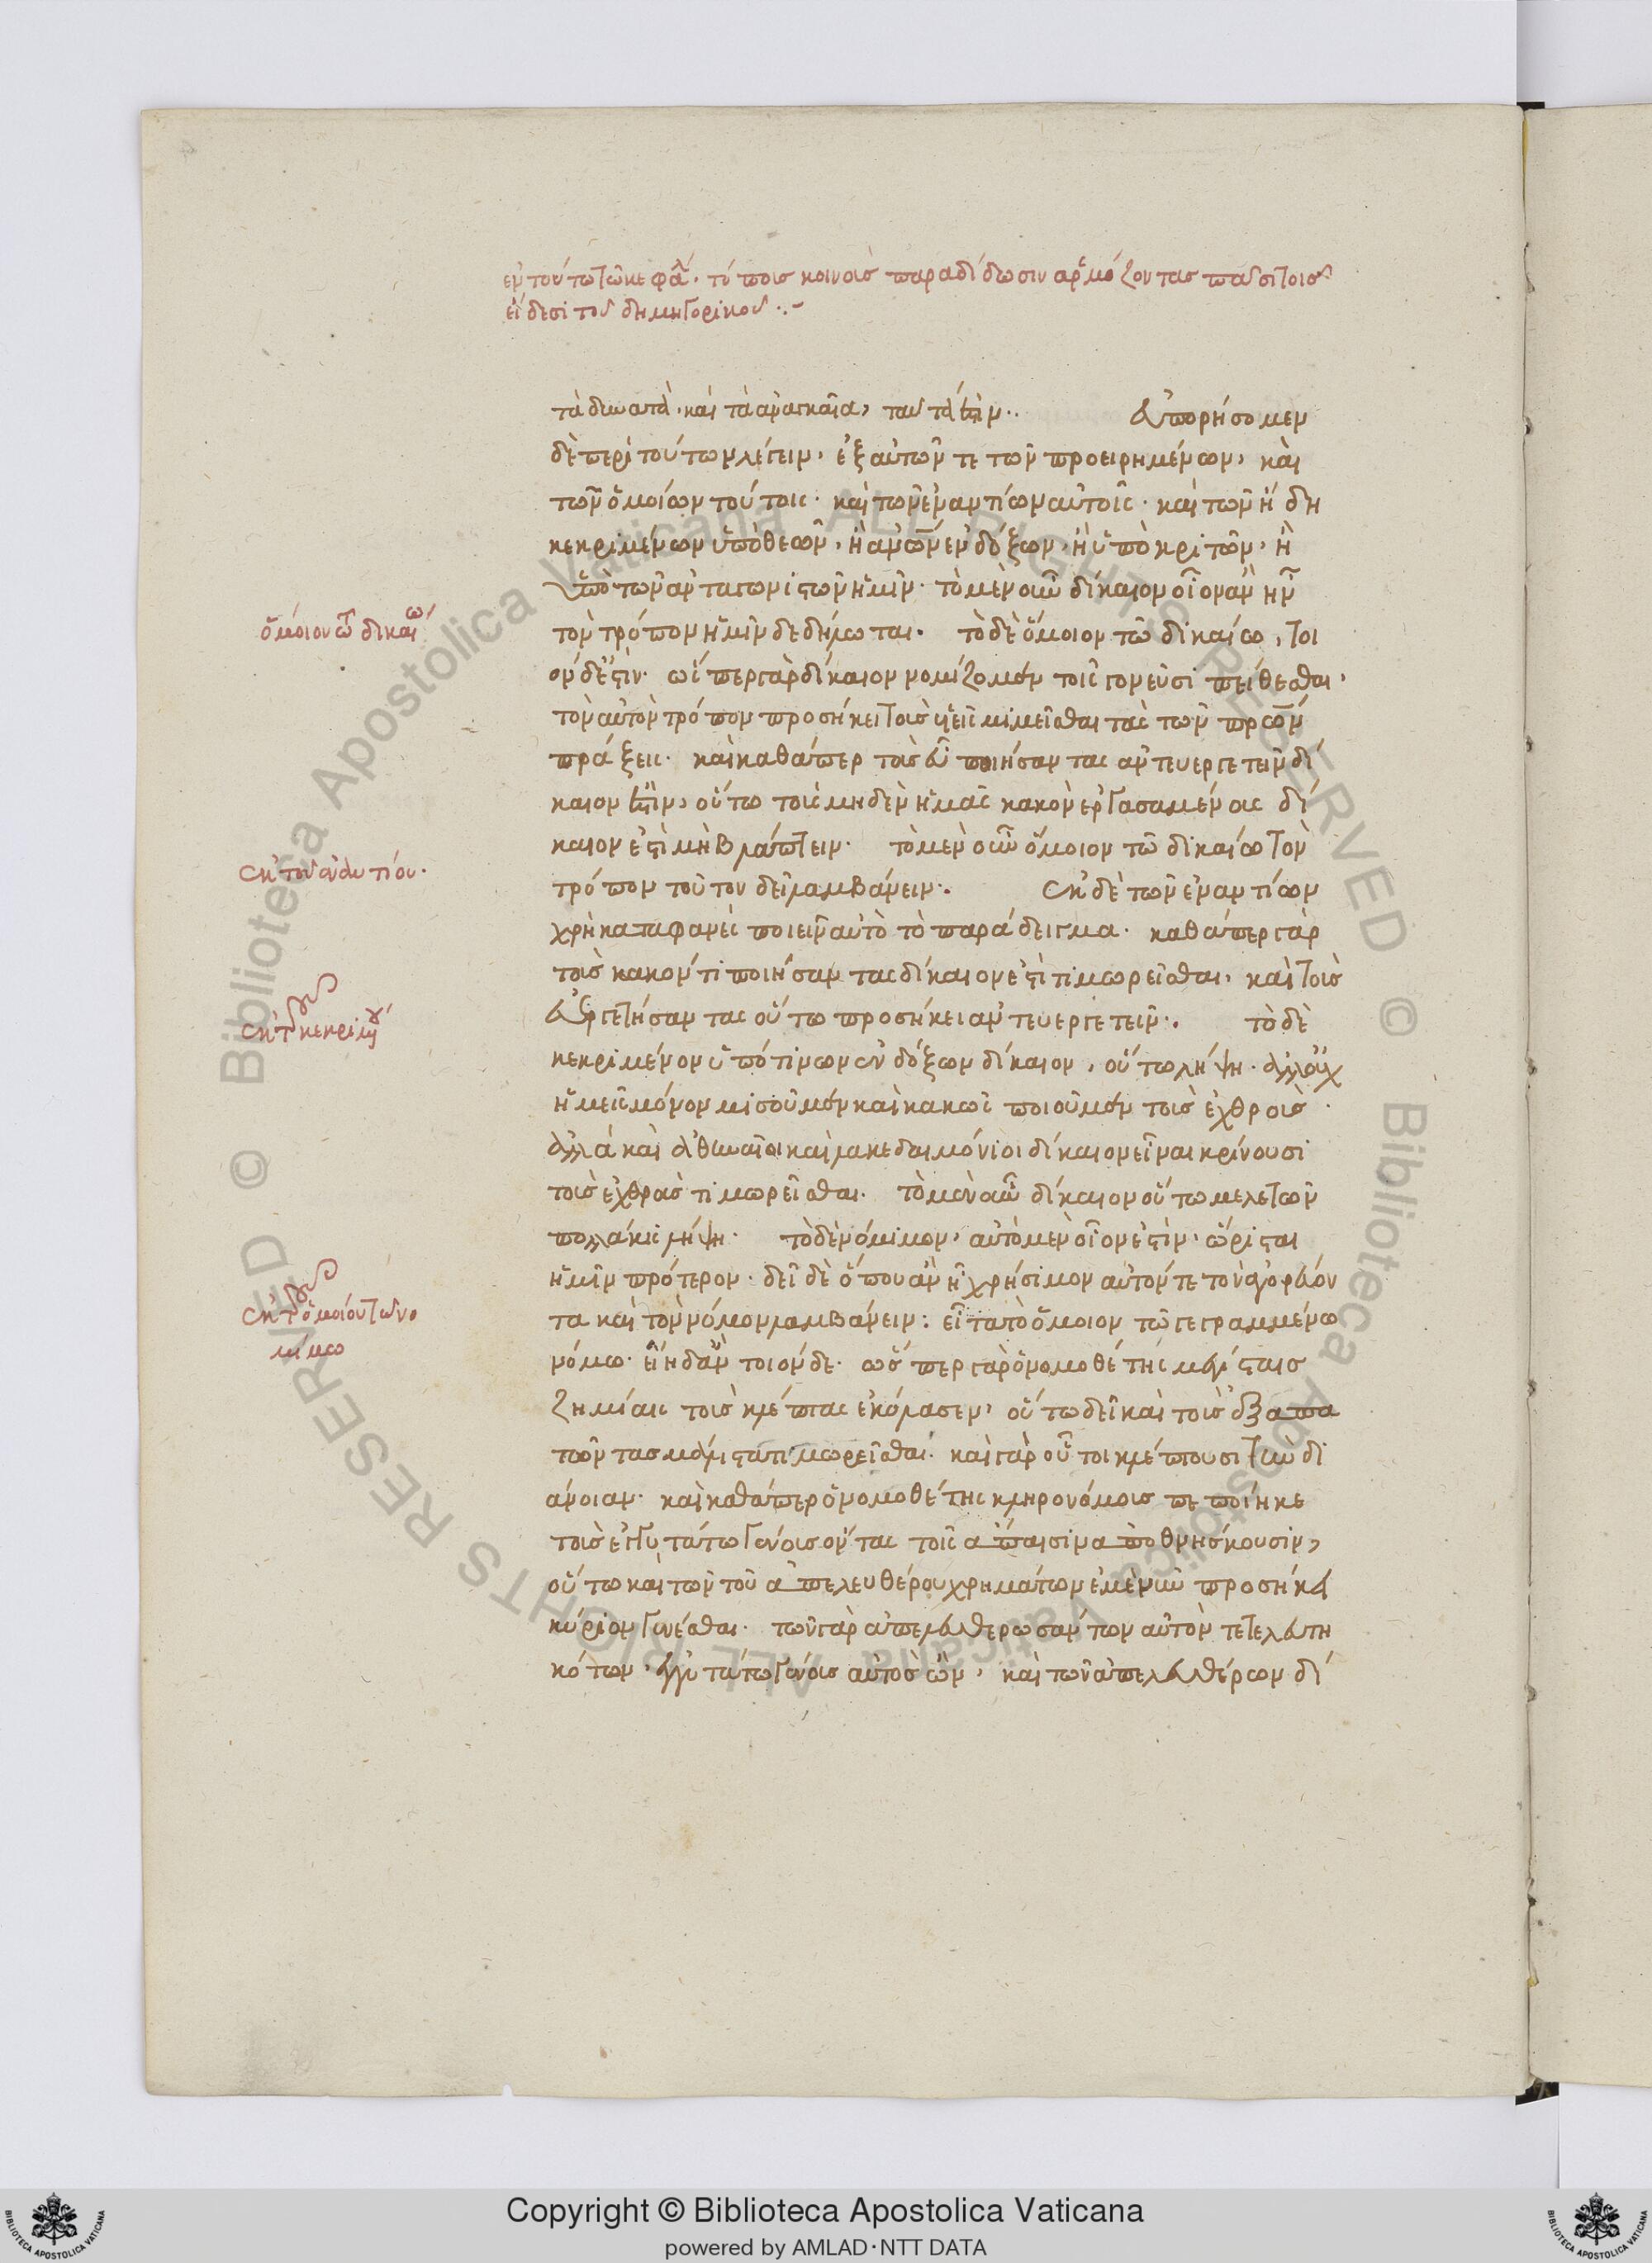 ἐν τούτω τῶ κεφαλ. τόποις κοινοῖς παραδίδωσιν ἁρμόζοντας πᾶσι τοῖς
εἴδεσι τοῦ δημηγορικοῦ :-
τὰ δυνατὰ. καὶ τὰ ἀναγκαῖα, ταῦτά ἐστιν. εὐπορήσομεν
δὲ περὶ τούτων λέγειν, ἐξ αὐτῶν τε τῶν προειρημένων, καὶ
τῶν ὁμοίων τούτοις. καὶ τῶν ἐναντίων αὐτοῖς. καὶ τῶν ἤδη
κεκριμένων ὑπὸ θεῶν, ἢ ἀνων ἐνδόξων, ἢ ὑπὸ κριτῶν, ἢ
ὑπὸ τῶν ἀνταγωνιστῶν ἡμῖν. τὸ μὲν οὖν δίκαιον οἷον ἂν ἦν
τὸν τρόπον ἡμῖν δεδήλωται. τὸ δὲ ὅμοιον τῶ δικαίω, τοι
όνδέ ἐστιν. ὥσπερ γὰρ δίκαιον νομίζομεν τοῖς γονεῦσι πείθεσθαι,
τὸν αὐτὸν τρόπον προσήκει τοῖς υἱεῖς μιμεῖσθαι τὰς τῶν πρων
πράξεις. καὶ καθάπερ τοὺς εὖ ποιήσαντας ἀντευεργετεῖν δί
καιόν ἐστιν, οὕτω τοὺς μηδὲν ἡμᾶς κακὸν ἐργασαμένους δί
καιόν ἐστι μὴ βλάπτειν. τὸ μὲν οὖν ὅμοιον τῶ δικαίω τὸν
τρόπον τοῦτον δεῖ λαμβάνειν. ἐκ δὲ τῶν ἐναντίων
χρὴ καταφανὲς ποιεῖν αὐτὸ τὸ παράδειγμα. καθάπερ γὰρ
τοὺς κακόν τι ποιήσαντας δίκαιόν ἐστι τιμωρεῖσθαι, καὶ τοὺς
εὐεργετήσαντας οὕτω προσήκει ἀντευεργετεῖν. τὸ δὲ
κεκριμένον ὑπό τινων ἐνδόξων δίκαιον, οὕτω λήψη. ἀλλ' οὐχ
ἡμεῖς μόνον μισοῦμεν καὶ κακῶς ποιοῦμεν τοὺς ἐχθροὺς
ἀλλὰ καὶ ἀθηναῖοι καὶ λακεδαιμόνιοι δίκαιον εἶναι κρίνουσι
τοὺς ἐχθροὺς τιμωρεῖσθαι. τὸ μὲν οὖν δίκαιον οὕτω μελετῶν
πολλάκις λήψη. τὸ δὲ νόμιμον, αὐτὸ μὲν οἷόν ἐστιν, ὥρισται
ἡμῖν πρότερον. δεῖ δὲ ὅπου ἂν ἦ χρήσιμον αὐτόν τε τὸν ἀγορεύον
τα καὶ τὸν νόμον λαμβάνειν: εἶτα τὸ ὅμοιον τῶ γεγραμμένω
νόμω. εἴη δ' ἂν τοιόνδε. ὥσπερ γὰρ ὁ νομοθέτης μεγίσταις
ζημίαις τοὺς κλέπτας ἐκόλασεν, οὕτω δεῖ καὶ τοὺς ἐξαπα
τῶντας μάλιστα τιμωρεῖσθαι. καὶ γὰρ οὗτοι κλέπτουσι τὴν δι
άνοιαν. καὶ καθάπερ ὁ νομοθέτης κληρονόμους πεποίηκε
τοὺς ἐγγυτάτω γένους ὄντας τοῖς ἄπαισιν ἀποθνήσκουσιν,
οὕτω καὶ τῶν τοῦ ἀπελευθέρου χρημάτων ἐμὲ νῦν προσήκει
κύριον γενέσθαι. τῶν γὰρ ἀπελευθερωσάντων αὐτὸν τετελευτη
κότων, ἐγγυτάτω γένους αὐτὸς ὢν, καὶ τῶν ἀπελευθέρων δί
ὅμοιον τῶ δικαίω
ἐκ τοῦ ἐναντίου.
ἐκ τοῦ κεκριμένου
ἐκ τοῦ ὁμοίου τῶ νο
μίμω
Copyright © Biblioteca Apostolica Vaticana
powered by AMLAD·NTT DATA